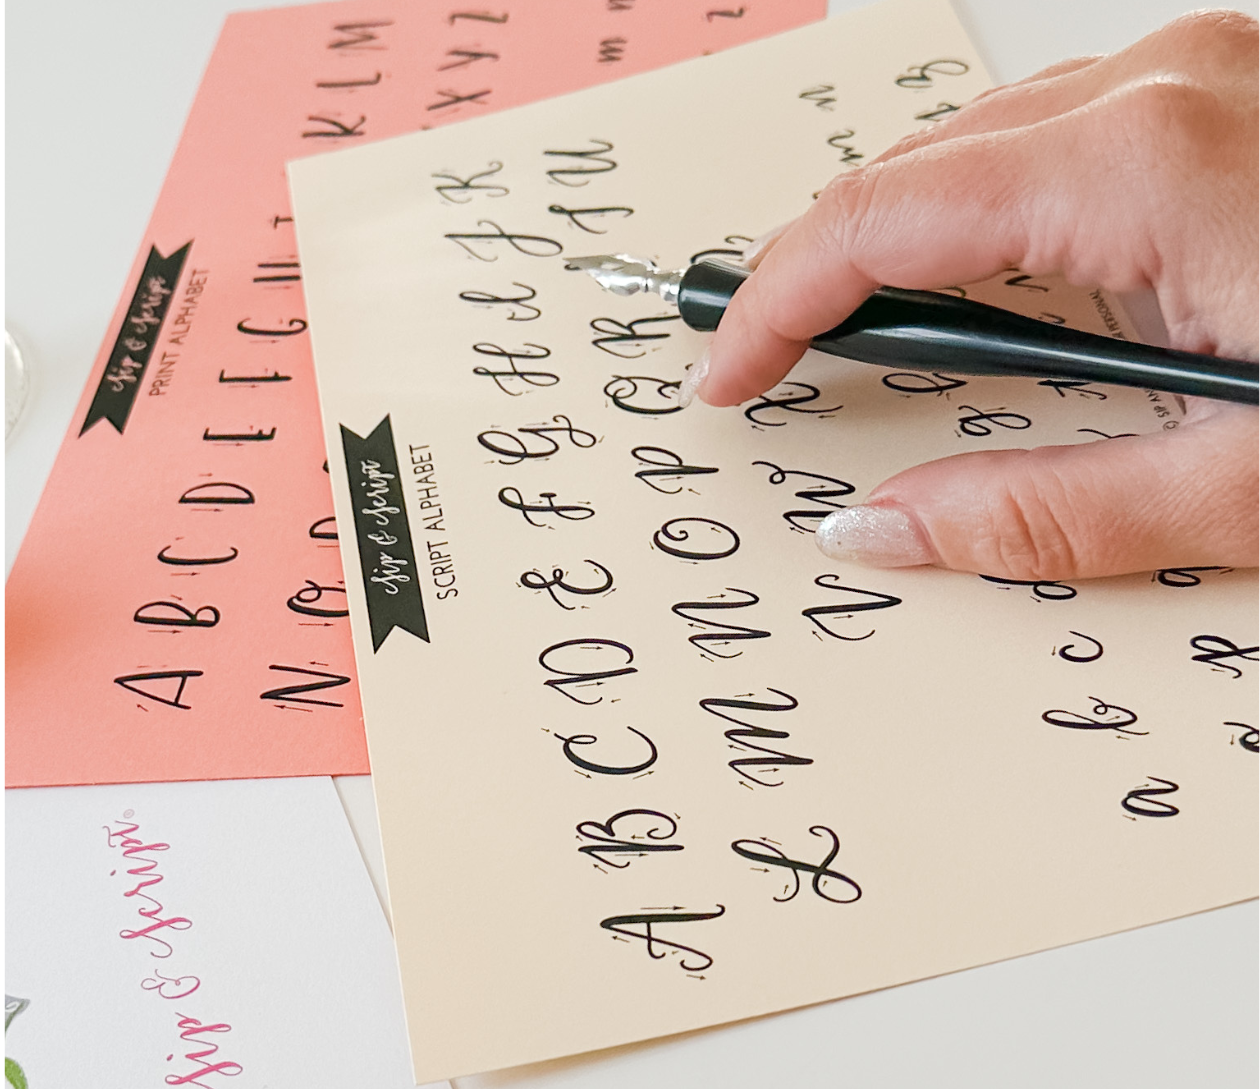 Sip & Script
PRINT ALPHABET
A B C D E F G H I K L M
N O X Y Z
m n
z
Sip & Script
SCRIPT ALPHABET
A B C D E F G H I J K
L M N O P Q R T U
V W X
a b c d g m n
p q
PERSONAL
Sip & Script®